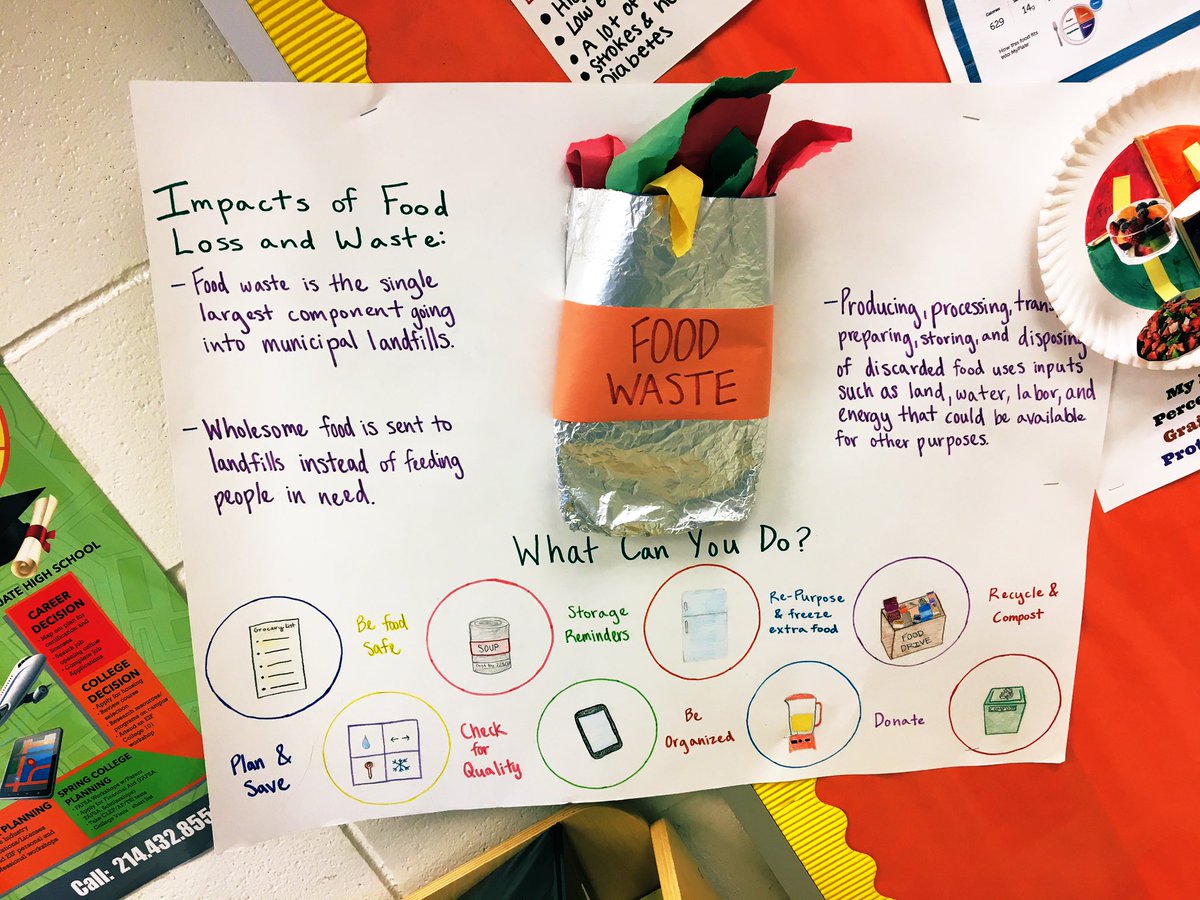 Low
A lot of
Strokes &
Diabetes
Calories
629
14g
How this food fits
into MyPlate
Impacts of Food
Loss and Waste:
- Food waste is the single
largest component going
into municipal landfills.
- Wholesome food is sent to
landfills instead of feeding
people in need.
FOOD
WASTE
- Producing, processing,
preparing, storing, and disposing
of discarded food uses inputs
such as land, water, labor, and
energy that could be available
for other purposes.
My
What Can You Do?
Grocery List
Be food
Safe
SOUP
Storage
Reminders
Re-Purpose
& freeze
extra food
FOOD
DRIVE
Recycle &
Compost
Plan &
Save
Check
for
Quality
Be
Organized
Donate
COMPOST
HIGH SCHOOL
CAREER
DECISION
COLLEGE
DECISION
SPRING COLLEGE
PLANNING
PLANNING
Call: 214.432.855